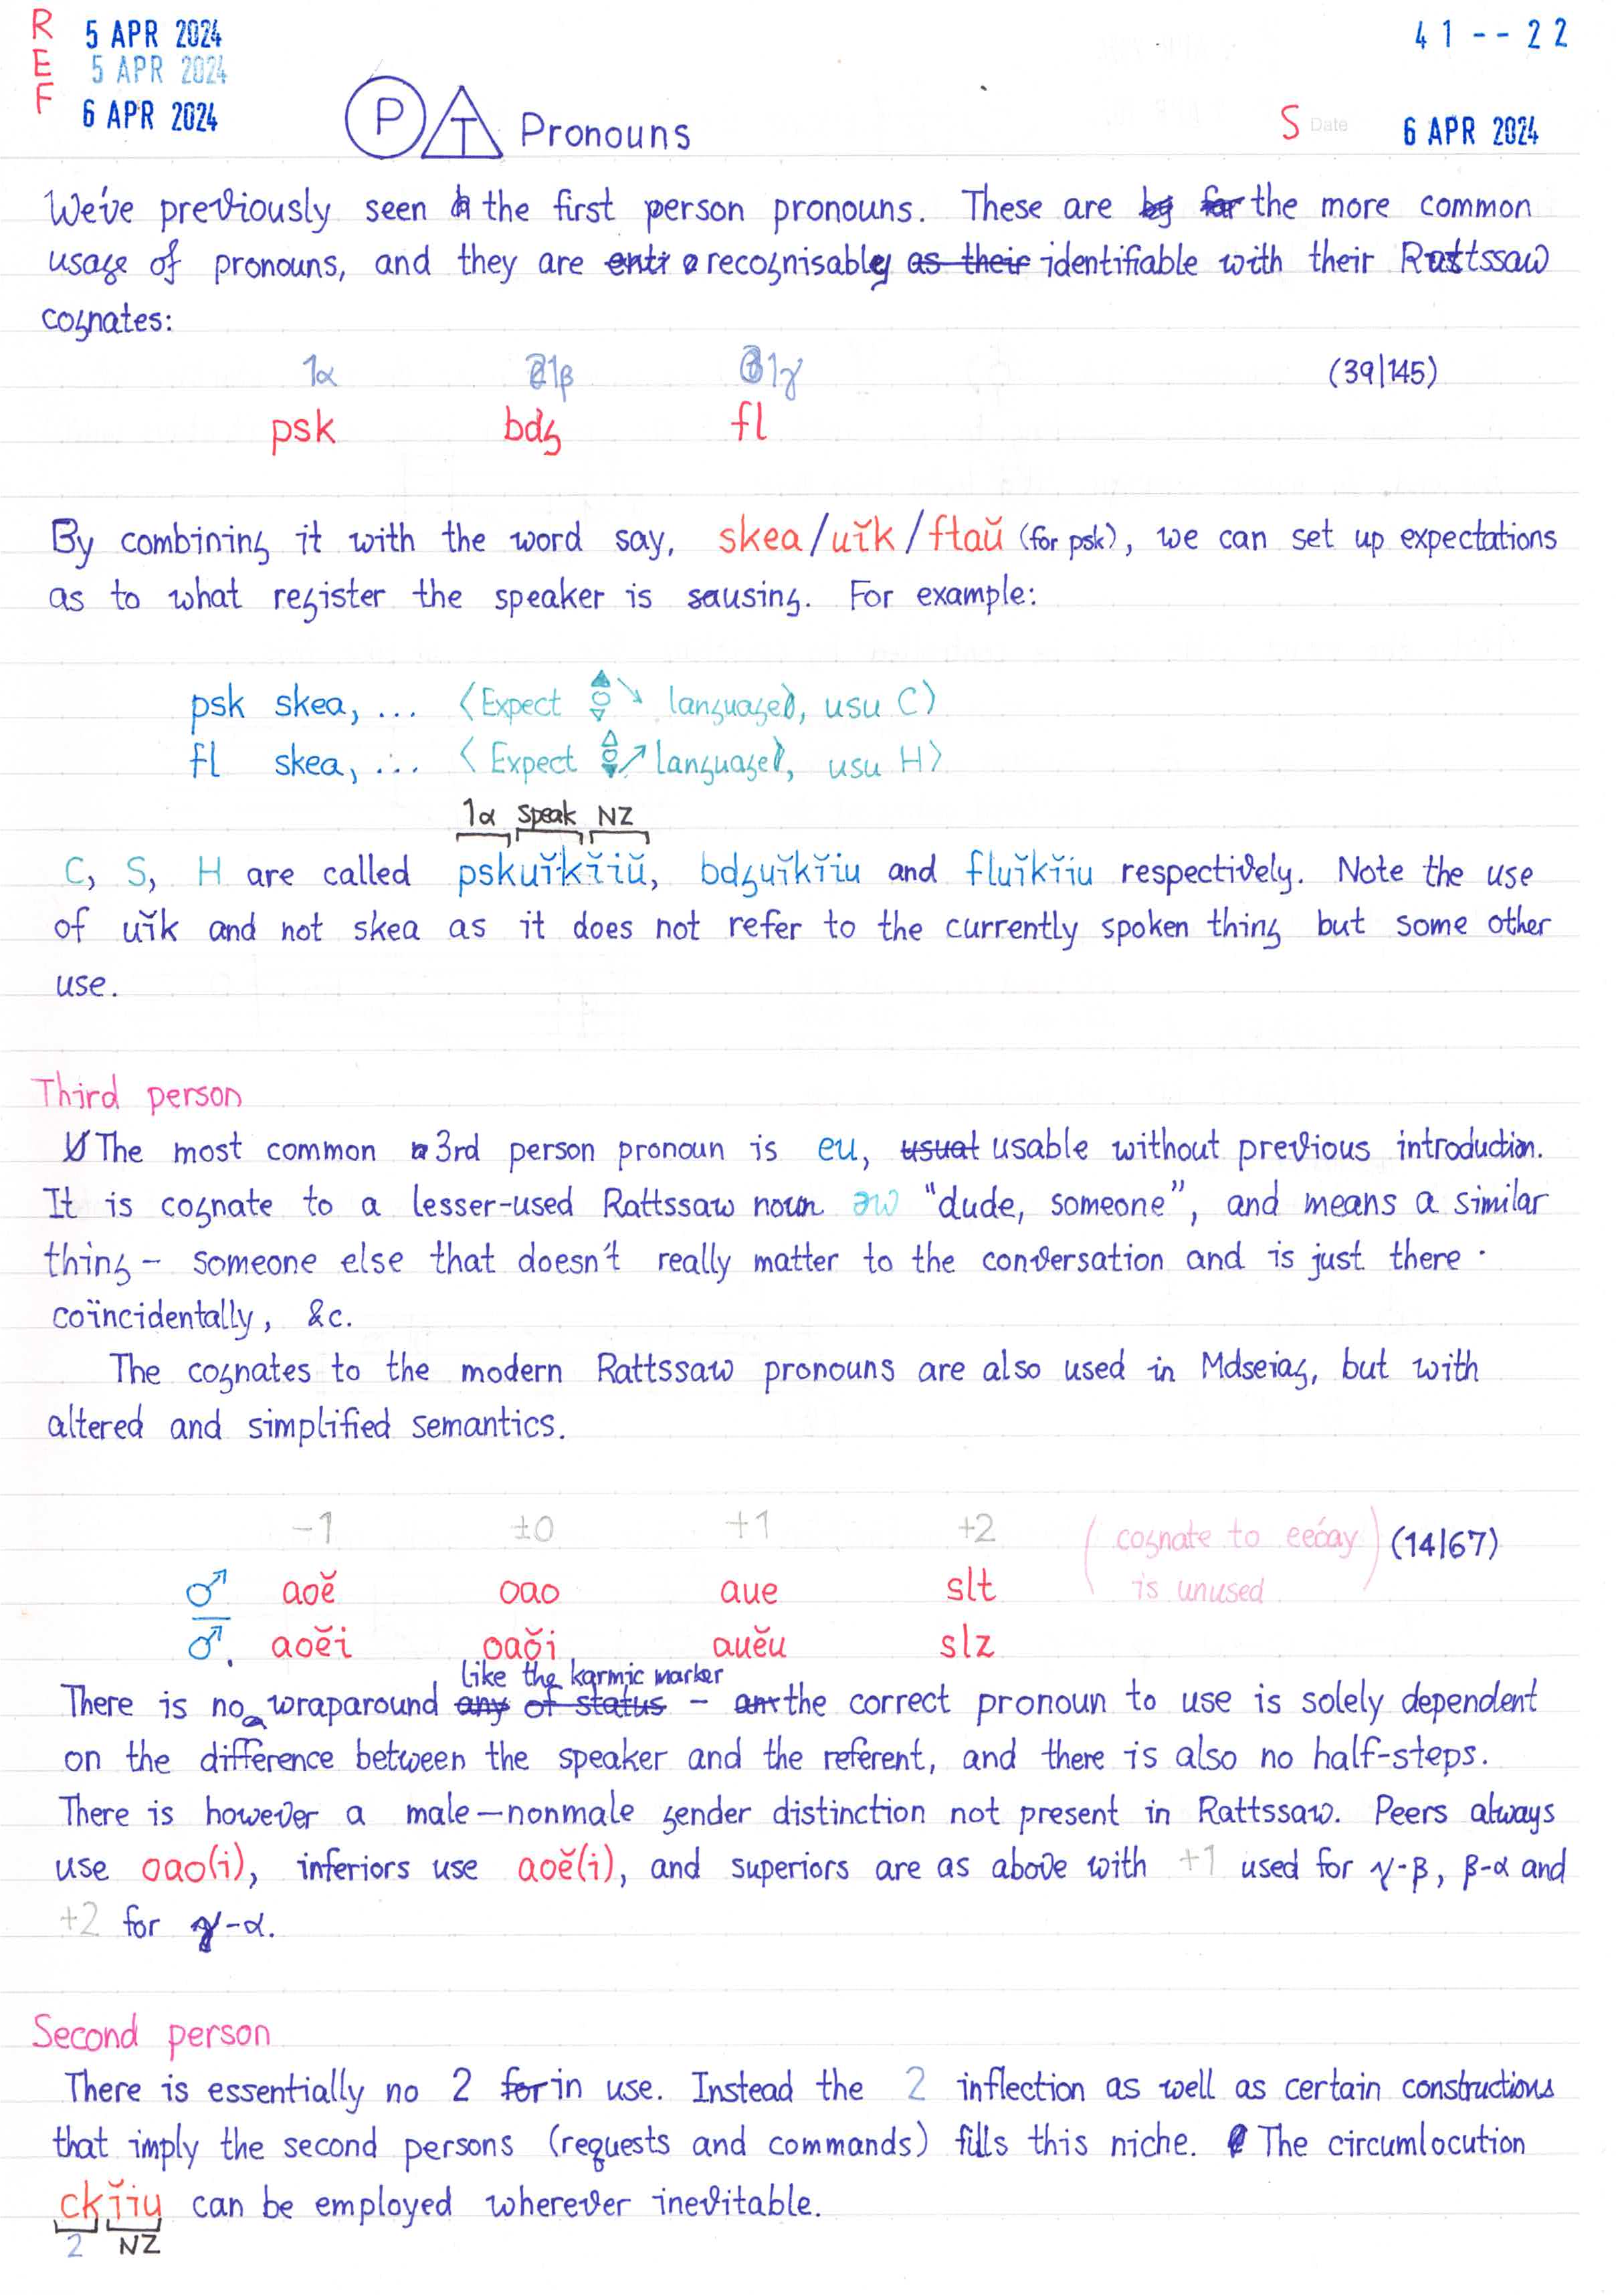 REF
5 APR 2024
5 APR 2024
6 APR 2024
41--22
P T Pronouns
S Date 6 APR 2024
We've previously seen the first person pronouns. These are the more common
usage of pronouns, and they are recognisably identifiable with their Rattssaw
cognates:
1α 1β 1γ (39|145)
psk bdg fl
By combining it with the word say, skea/uĭk/ftaŭ (for psk), we can set up expectations
as to what register the speaker is using. For example:
psk skea, ... ⟨Expect language, usu C⟩
fl skea, ... ⟨Expect language, usu H⟩
1α speak NZ
C, S, H are called pskuĭkĭiŭ, bdguĭkĭiu and fluĭkĭiu respectively. Note the use
of uĭk and not skea as it does not refer to the currently spoken thing but some other
use.
Third person
The most common 3rd person pronoun is eu, usual usable without previous introduction.
It is cognate to a lesser-used Rattssaw noun əw "dude, someone", and means a similar
thing – someone else that doesn't really matter to the conversation and is just there
coïncidentally, &c.
The cognates to the modern Rattssaw pronouns are also used in Mdseiag, but with
altered and simplified semantics.
-1 ±0 +1 +2 (cognate to eećay is unused) (14|67)
♂ aoĕ oao aue slt
♂. aoĕi oaŏi auĕu slz
like the karmic marker
There is no wraparound any of status – the correct pronoun to use is solely dependent
on the difference between the speaker and the referent, and there is also no half-steps.
There is however a male–nonmale gender distinction not present in Rattssaw. Peers always
use oao(i), inferiors use aoĕ(i), and superiors are as above with +1 used for γ-β, β-α and
+2 for γ-α.
Second person
There is essentially no 2 in use. Instead the 2 inflection as well as certain constructions
that imply the second persons (requests and commands) fills this niche. The circumlocution
ckĭiu can be employed wherever inevitable.
2 NZ